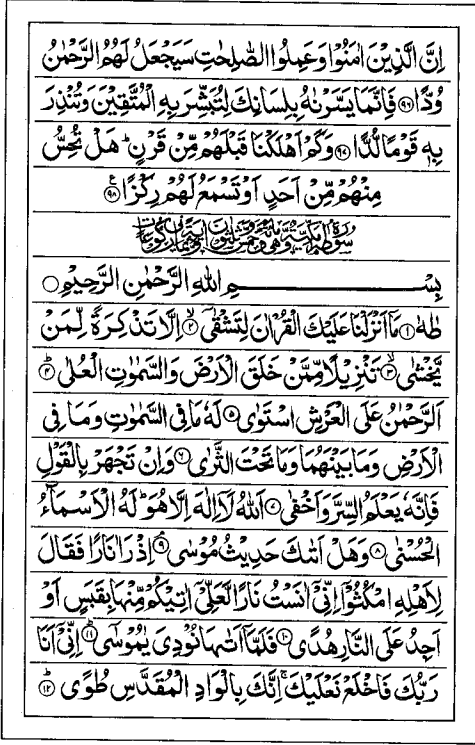 اِنَّ الَّذِیْنَ اٰمَنُوْا وَعَمِلُوا الصّٰلِحٰتِ سَیَجْعَلُ لَهُمُ الرَّحْمٰنُ
وُدًّا ﴿۹۶﴾ فَاِنَّمَا یَسَّرْنٰهُ بِلِسَانِكَ لِتُبَشِّرَ بِهِ الْمُتَّقِیْنَ وَتُنْذِرَ
بِهٖ قَوْمًا لُّدًّا ﴿۹۷﴾ وَكَمْ اَهْلَكْنَا قَبْلَهُمْ مِّنْ قَرْنٍ ؕ هَلْ تُحِسُّ
مِنْهُمْ مِّنْ اَحَدٍ اَوْ تَسْمَعُ لَهُمْ رِكْزًا ﴿۹۸﴾ ع
سُوْرَةُ طٰهٰ مَكِّیَّةٌ وَّهِیَ مِائَةٌ وَّخَمْسٌ وَّثَلٰثُوْنَ اٰیَةً وَّثَمَانِیْ رُكُوْعَاتٍ
بِسْمِ اللهِ الرَّحْمٰنِ الرَّحِیْمِ
طٰهٰ ﴿۱﴾ مَاۤ اَنْزَلْنَا عَلَیْكَ الْقُرْاٰنَ لِتَشْقٰۤی ﴿۲﴾ اِلَّا تَذْكِرَةً لِّمَنْ
یَّخْشٰی ﴿۳﴾ تَنْزِیْلًا مِّمَّنْ خَلَقَ الْاَرْضَ وَالسَّمٰوٰتِ الْعُلٰی ﴿۴﴾
اَلرَّحْمٰنُ عَلَی الْعَرْشِ اسْتَوٰی ﴿۵﴾ لَهٗ مَا فِی السَّمٰوٰتِ وَمَا فِی
الْاَرْضِ وَمَا بَیْنَهُمَا وَمَا تَحْتَ الثَّرٰی ﴿۶﴾ وَاِنْ تَجْهَرْ بِالْقَوْلِ
فَاِنَّهٗ یَعْلَمُ السِّرَّ وَاَخْفٰی ﴿۷﴾ اَللهُ لَاۤ اِلٰهَ اِلَّا هُوَ ؕ لَهُ الْاَسْمَآءُ
الْحُسْنٰی ﴿۸﴾ وَهَلْ اَتٰىكَ حَدِیْثُ مُوْسٰی ﴿۹﴾ اِذْ رَاٰ نَارًا فَقَالَ
لِاَهْلِهِ امْكُثُوْۤا اِنِّیْۤ اٰنَسْتُ نَارًا لَّعَلِّیْۤ اٰتِیْكُمْ مِّنْهَا بِقَبَسٍ اَوْ
اَجِدُ عَلَی النَّارِ هُدًی ﴿۱۰﴾ فَلَمَّاۤ اَتٰىهَا نُوْدِیَ یٰمُوْسٰی ﴿۱۱﴾ اِنِّیْۤ اَنَا
رَبُّكَ فَاخْلَعْ نَعْلَیْكَ ۚ اِنَّكَ بِالْوَادِ الْمُقَدَّسِ طُوًی ﴿۱۲﴾